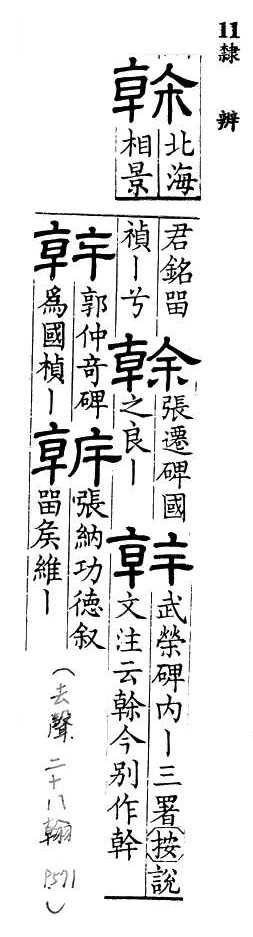 11 隸辨
榦
北海
相景
君銘㽞
禎丨兮
榦
張遷碑國
之良丨
幹
武榮碑内丨三署(按)說
文注云榦今别作幹
幹
郭仲竒碑
爲國楨丨
張納功徳叙
㽞矦維丨
(去聲 二十八翰 P571)